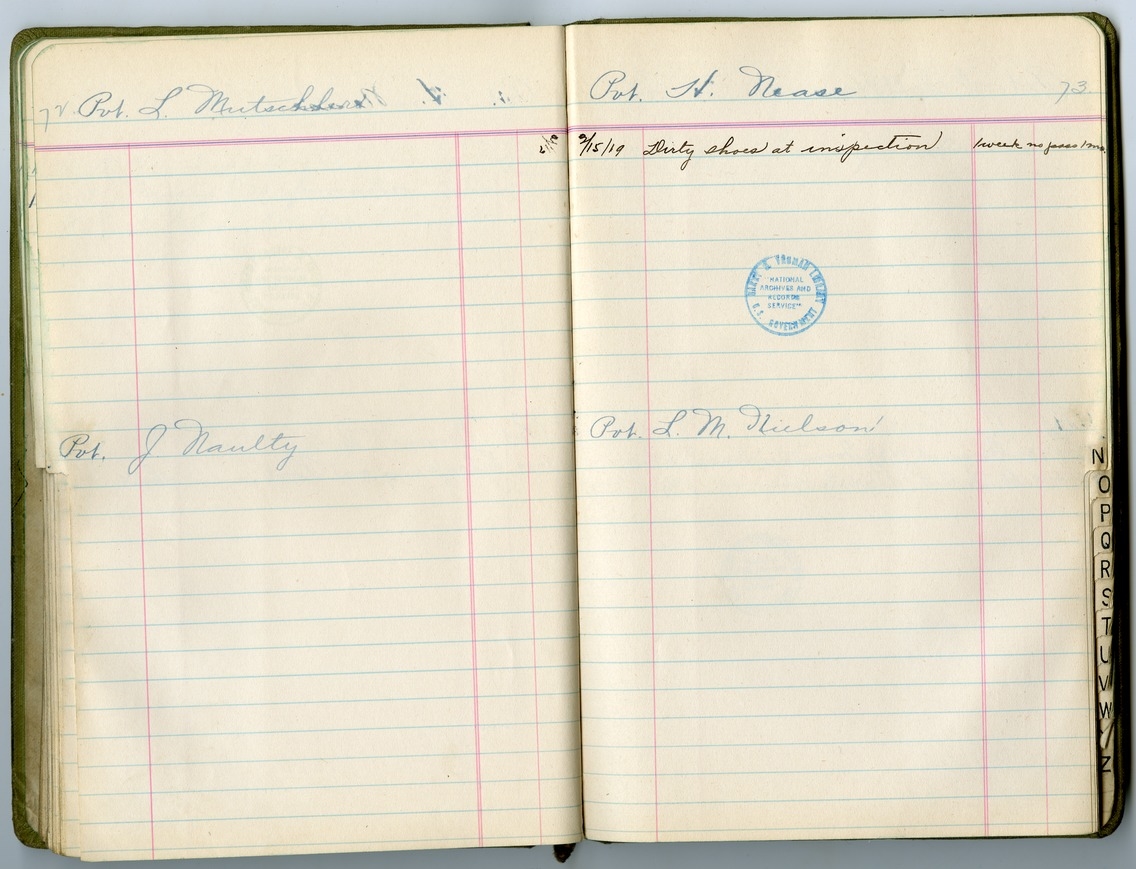 72 Pvt. L. Mutschler
Pvt. J Naulty
Pvt. H. Nease 73
2/15/19 Dirty shoes at inspection 1 week no pass 1 mo.
HARRY S. TRUMAN LIBRARY
"NATIONAL
ARCHIVES AND
RECORDS
SERVICE"
U.S. GOVERNMENT
Pvt. L. M. Nielson
N
O
P
Q
R
S
T
U
V
W
Z